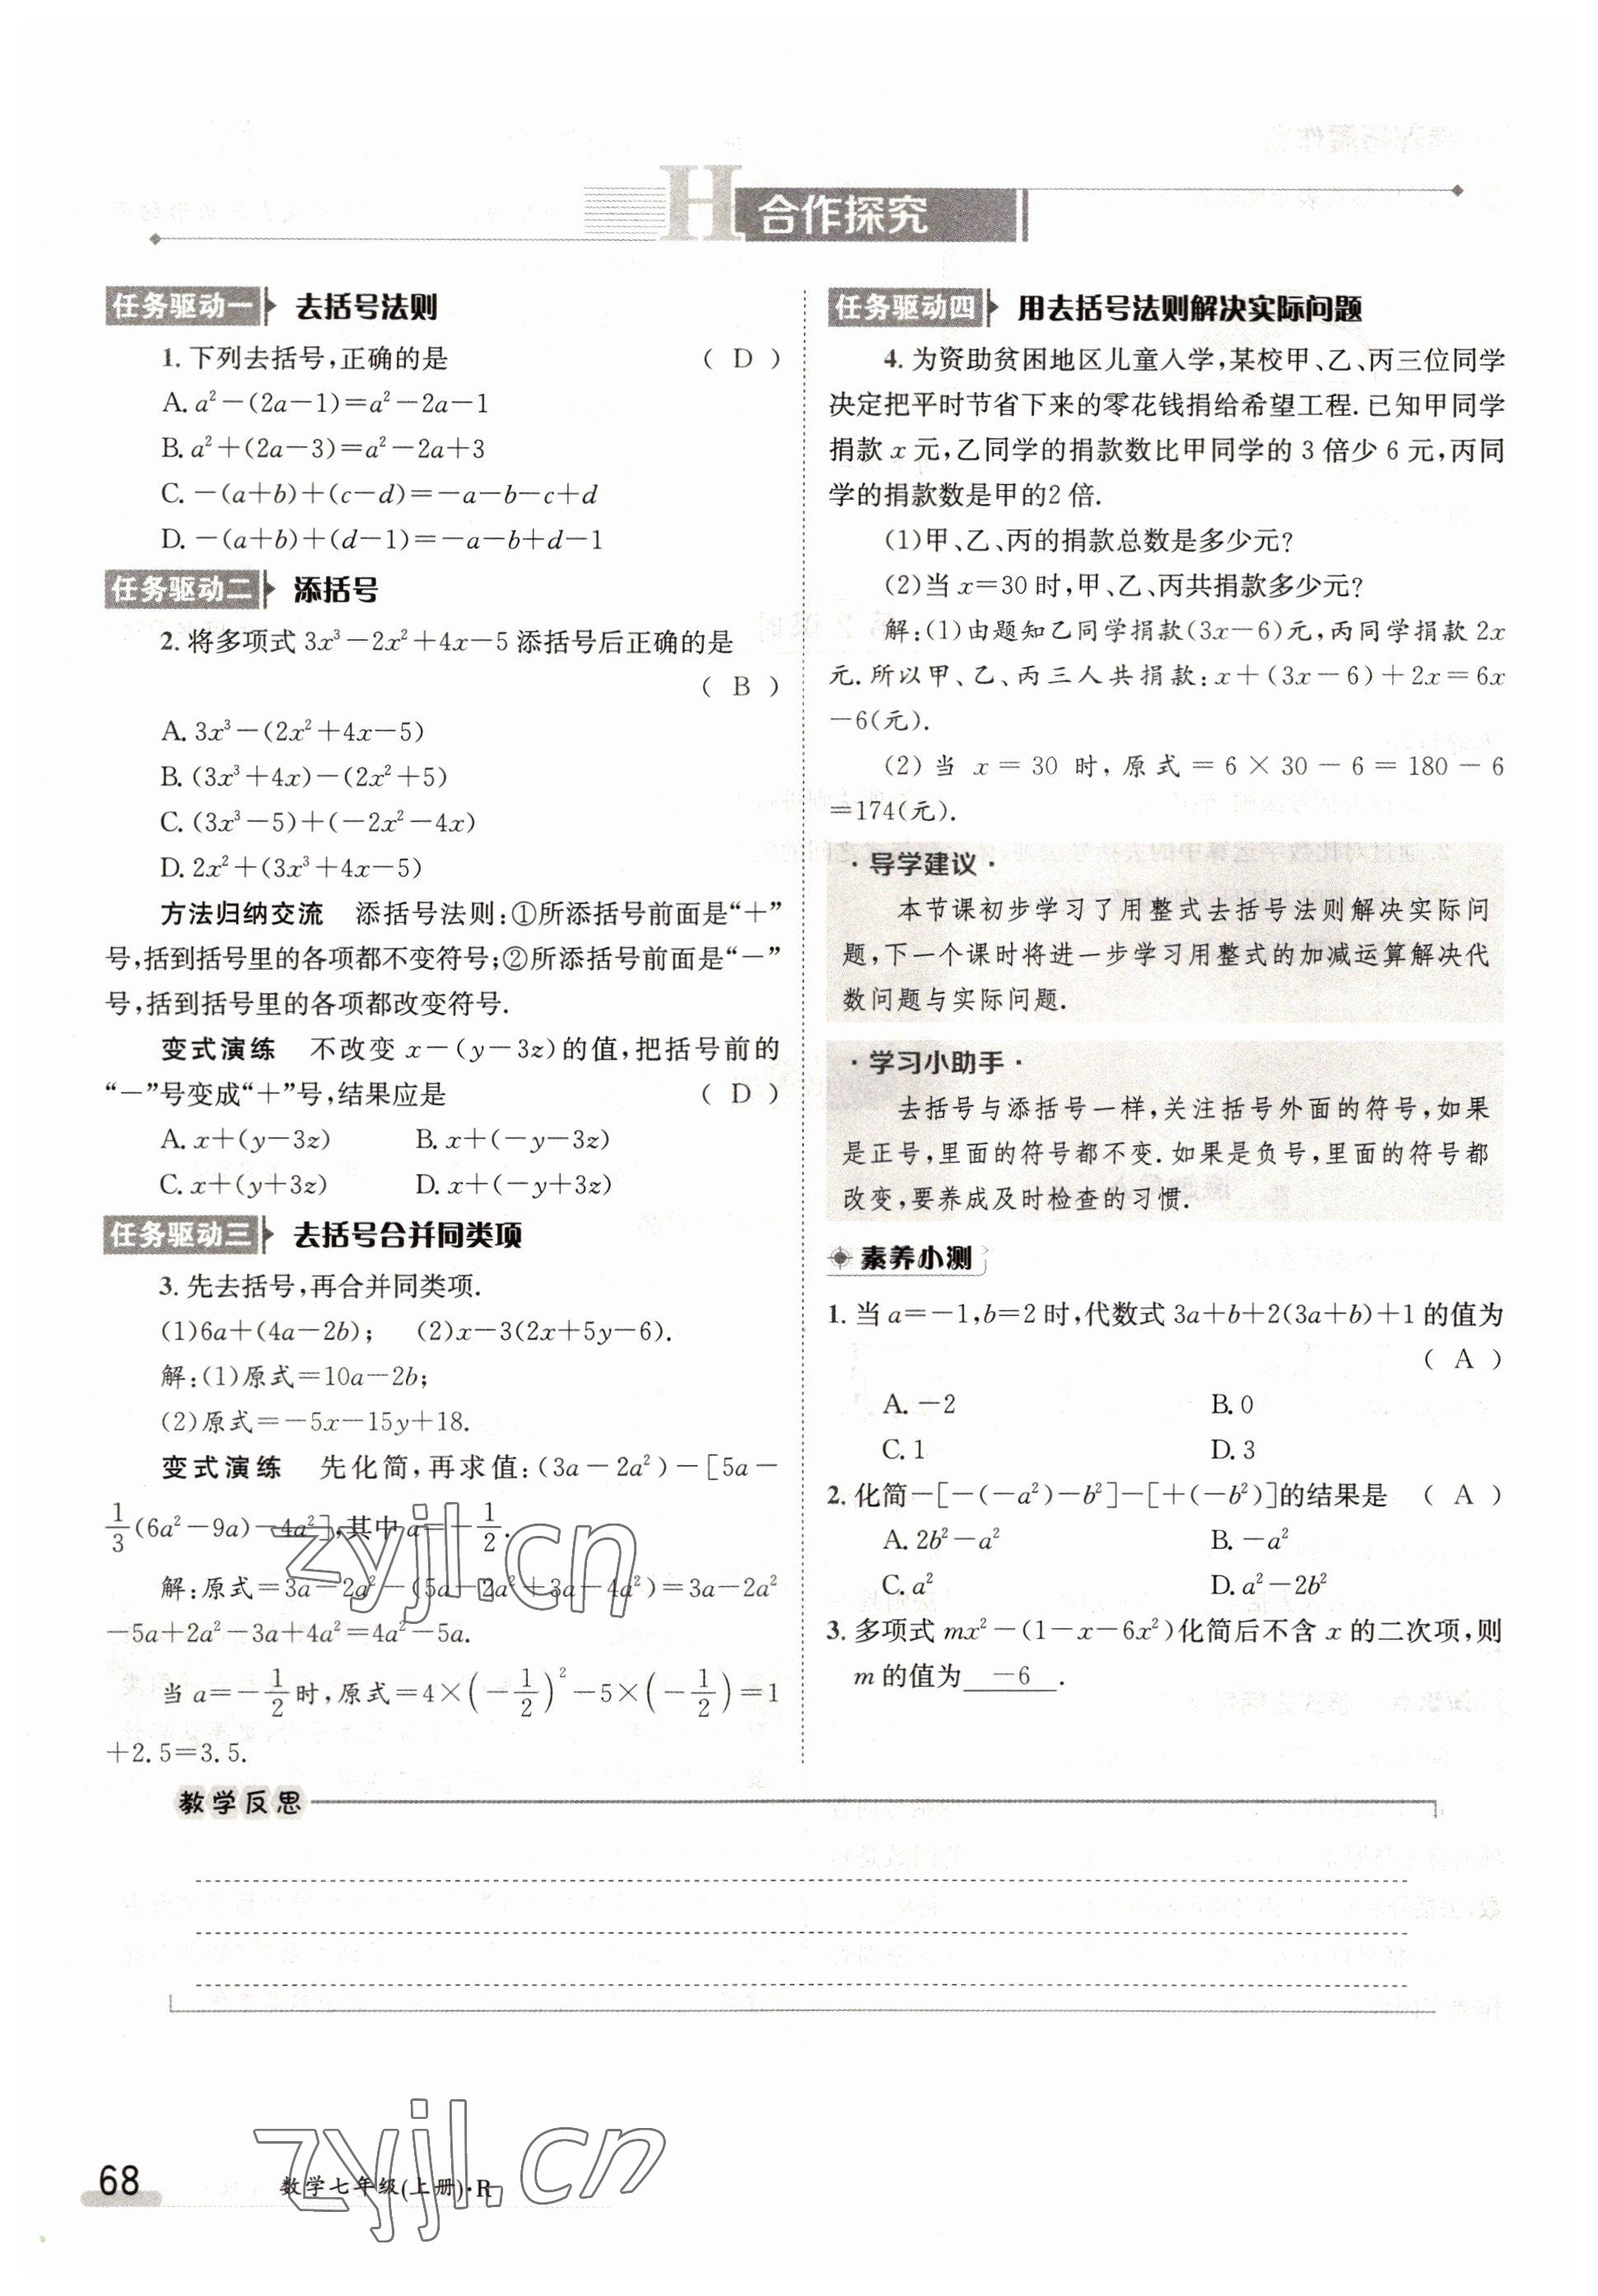 H 合作探究
任务驱动一 去括号法则
1. 下列去括号,正确的是 ( D )
A. a²－(2a－1)＝a²－2a－1
B. a²＋(2a－3)＝a²－2a＋3
C. －(a＋b)＋(c－d)＝－a－b－c＋d
D. －(a＋b)＋(d－1)＝－a－b＋d－1
任务驱动二 添括号
2. 将多项式 3x³－2x²＋4x－5 添括号后正确的是
( B )
A. 3x³－(2x²＋4x－5)
B. (3x³＋4x)－(2x²＋5)
C. (3x³－5)＋(－2x²－4x)
D. 2x²＋(3x³＋4x－5)
方法归纳交流 添括号法则:①所添括号前面是“＋”
号,括到括号里的各项都不变符号;②所添括号前面是“－”
号,括到括号里的各项都改变符号.
变式演练 不改变 x－(y－3z)的值,把括号前的
“－”号变成“＋”号,结果应是 ( D )
A. x＋(y－3z) B. x＋(－y－3z)
C. x＋(y＋3z) D. x＋(－y＋3z)
任务驱动三 去括号合并同类项
3. 先去括号,再合并同类项.
(1)6a＋(4a－2b); (2)x－3(2x＋5y－6).
解:(1)原式＝10a－2b;
(2)原式＝－5x－15y＋18.
变式演练 先化简,再求值:(3a－2a²)－[5a－
1/3(6a²－9a)－4a²],其中 a＝－1/2.
解:原式＝3a－2a²－(5a－2a²＋3a－4a²)＝3a－2a²
－5a＋2a²－3a＋4a²＝4a²－5a.
当 a＝－1/2时,原式＝4×(－1/2)²－5×(－1/2)＝1
＋2.5＝3.5.
任务驱动四 用去括号法则解决实际问题
4. 为资助贫困地区儿童入学,某校甲、乙、丙三位同学
决定把平时节省下来的零花钱捐给希望工程. 已知甲同学
捐款 x 元,乙同学的捐款数比甲同学的 3 倍少 6 元,丙同
学的捐款数是甲的2 倍.
(1)甲、乙、丙的捐款总数是多少元?
(2)当 x＝30 时,甲、乙、丙共捐款多少元?
解:(1)由题知乙同学捐款(3x－6)元,丙同学捐款 2x
元. 所以甲、乙、丙三人共捐款:x＋(3x－6)＋2x＝6x
－6(元).
(2) 当 x＝30 时,原式＝6×30－6＝180－6
＝174(元).
·导学建议·
本节课初步学习了用整式去括号法则解决实际问
题,下一个课时将进一步学习用整式的加减运算解决代
数问题与实际问题.
·学习小助手·
去括号与添括号一样,关注括号外面的符号,如果
是正号,里面的符号都不变. 如果是负号,里面的符号都
改变,要养成及时检查的习惯.
素养小测
1. 当 a＝－1,b＝2 时,代数式 3a＋b＋2(3a＋b)＋1 的值为
( A )
A. －2 B. 0
C. 1 D. 3
2. 化简－[－(－a²)－b²]－[＋(－b²)]的结果是 ( A )
A. 2b²－a² B. －a²
C. a² D. a²－2b²
3. 多项式 mx²－(1－x－6x²)化简后不含 x 的二次项,则
m 的值为 －6 .
教学反思
zyjl.cn
zyjl.cn
68
数学七年级(上册)·R